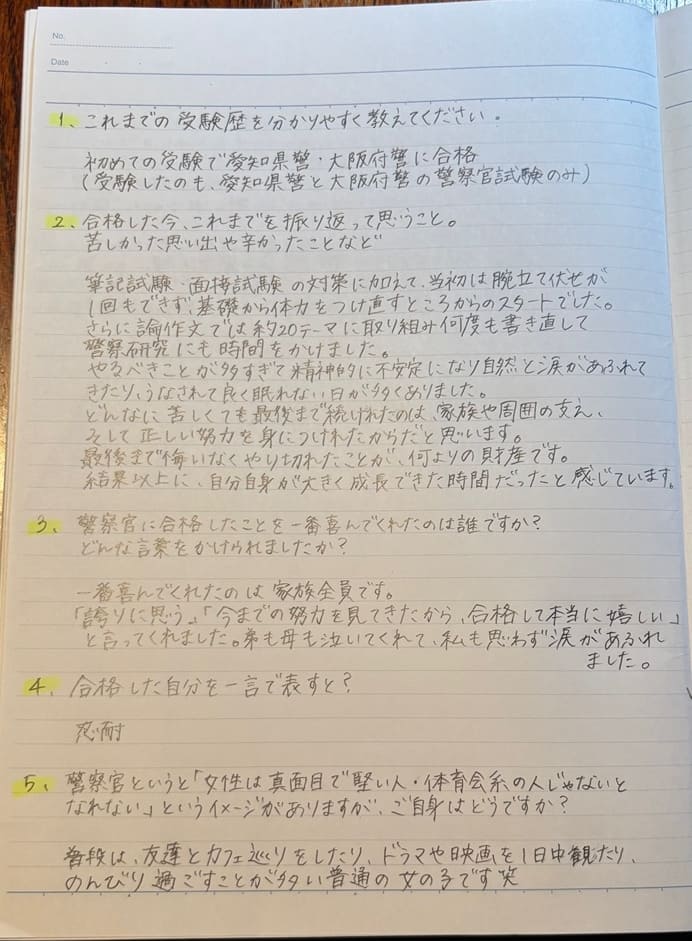 No.
Date
1、これまでの受験歴を分かりやすく教えてください。
初めての受験で愛知県警・大阪府警に合格
(受験したのも、愛知県警と大阪府警の警察官試験のみ)
2、合格した今、これまでを振り返って思うこと。
苦しかった思い出や辛かったことなど
筆記試験・面接試験の対策に加えて、当初は腕立て伏せが
1回もできず、基礎から体力をつけ直すところからのスタートでした。
さらに論作文では約20テーマに取り組み何度も書き直して
警察研究にも時間をかけました。
やるべきことが多すぎて精神的に不安定になり自然と涙があふれて
きたり、うなされて良く眠れない日が多くありました。
どんなに苦しくても最後まで続けれたのは、家族や周囲の支え、
そして正しい努力を身につけれたからだと思います。
最後まで悔いなくやり切れたことが、何よりの財産です。
結果以上に、自分自身が大きく成長できた時間だったと感じています。
3、警察官に合格したことを一番喜んでくれたのは誰ですか?
どんな言葉をかけられましたか?
一番喜んでくれたのは家族全員です。
「誇りに思う」、「今までの努力を見てきたから、合格して本当に嬉しい」
と言ってくれました。弟も母も泣いてくれて、私も思わず涙があふれ
ました。
4、合格した自分を一言で表すと?
忍耐
5、警察官というと「女性は真面目で堅い人・体育会系の人じゃないと
なれない」というイメージがありますが、ご自身はどうですか?
普段は、友達とカフェ巡りをしたり、ドラマや映画を1日中観たり、
のんびり過ごすことが多い普通の女の子です笑